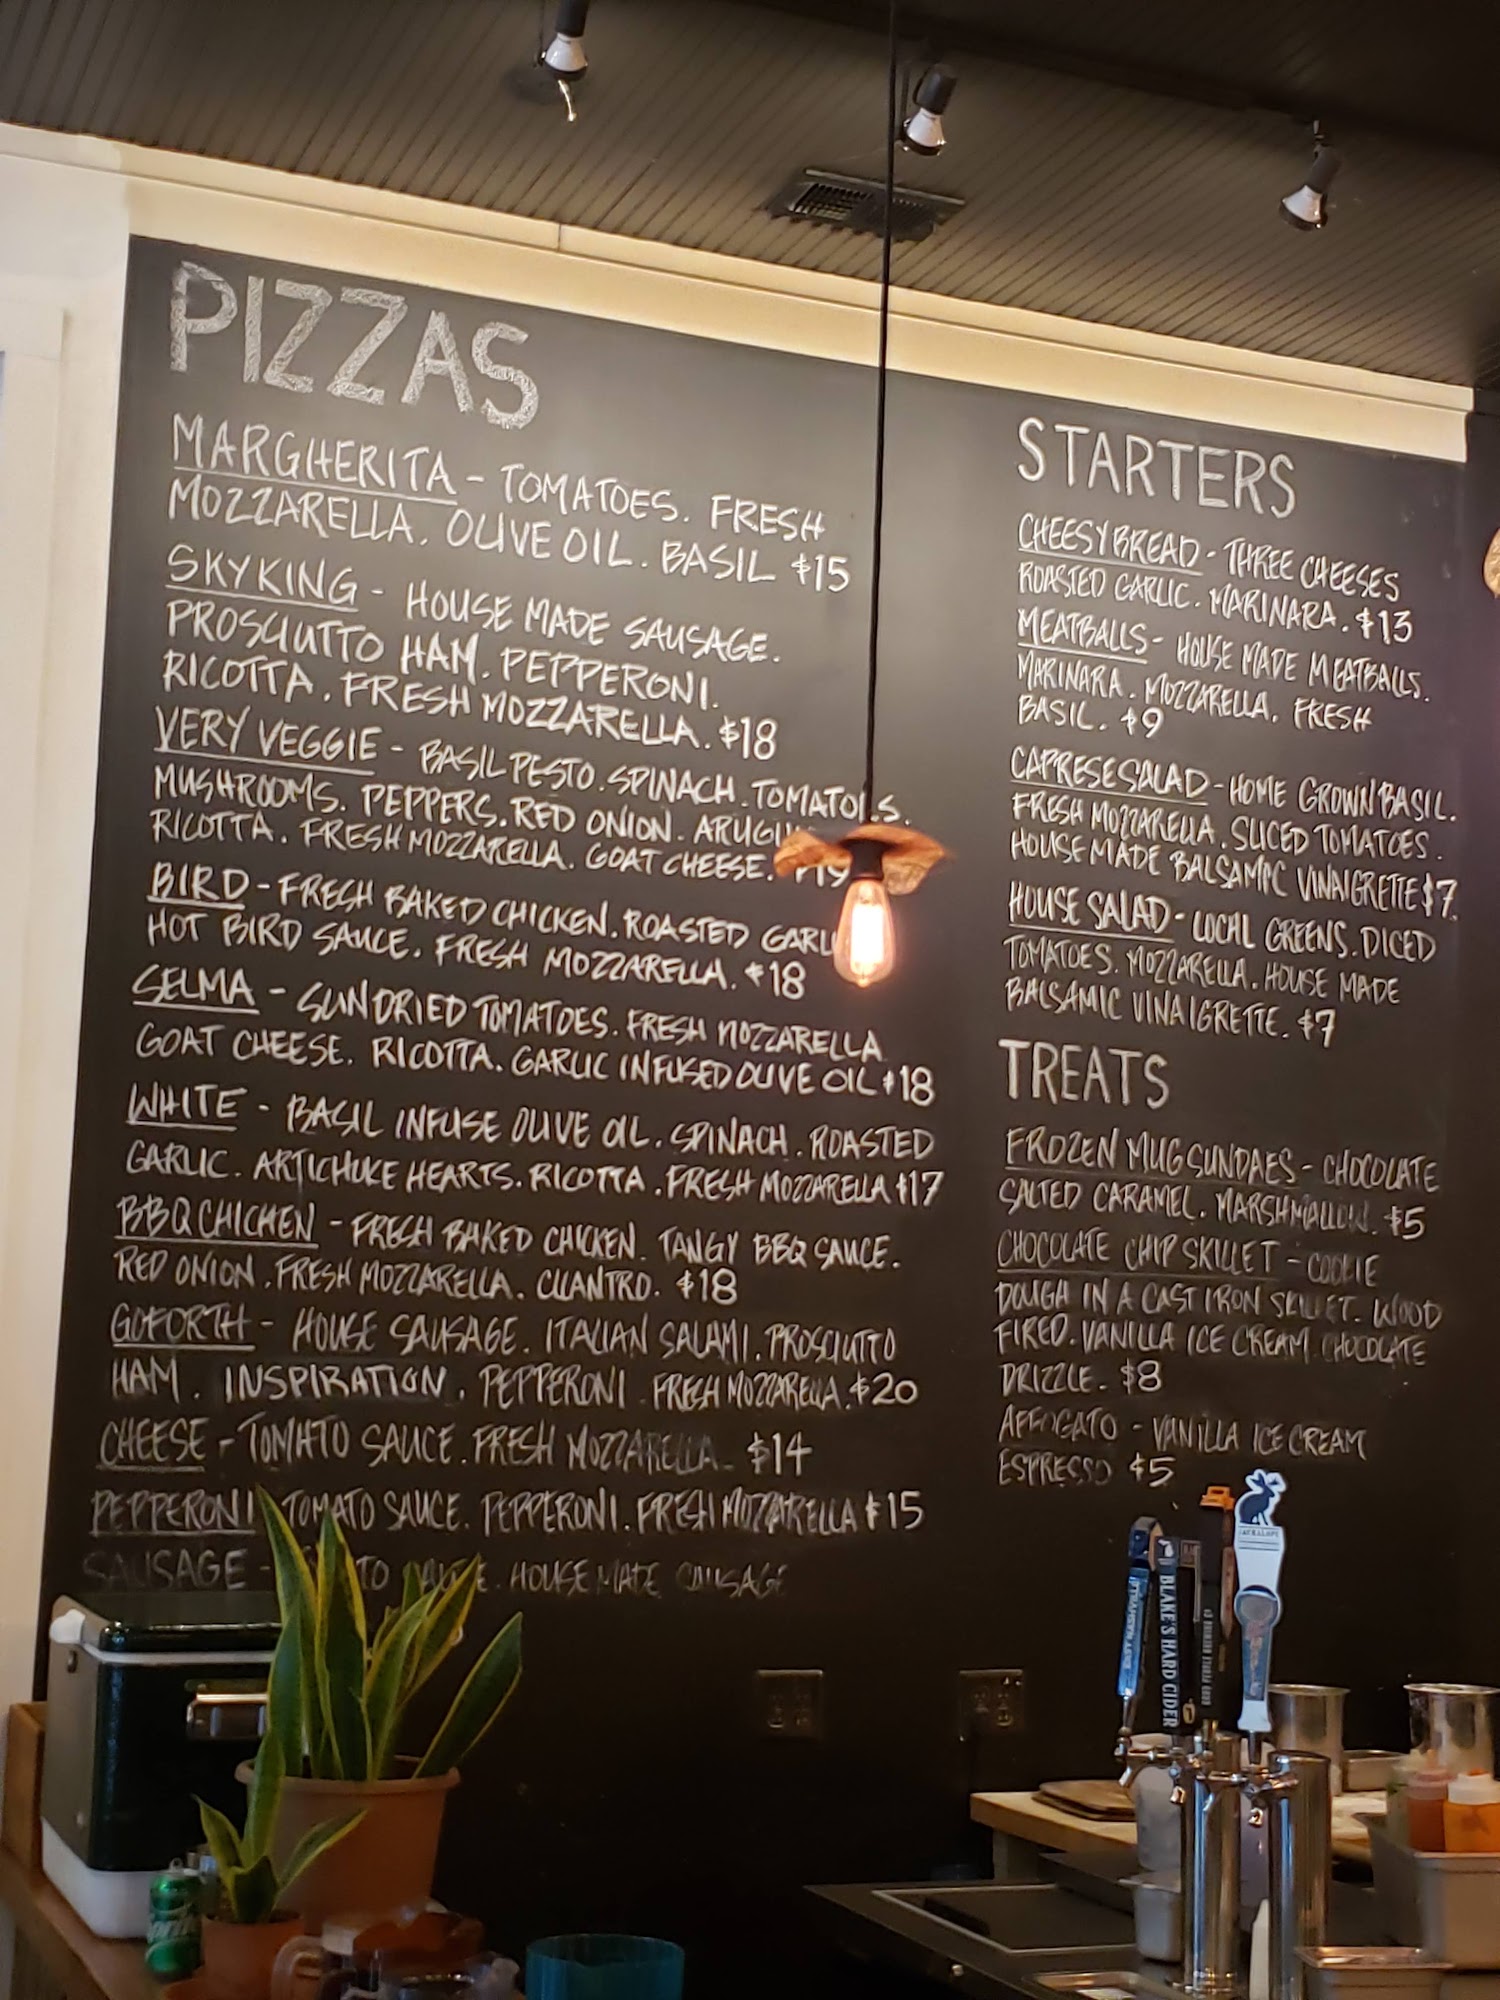 PIZZAS
MARGHERITA - TOMATOES. FRESH
MOZZARELLA. OLIVE OIL. BASIL $15
SKYKING - HOUSE MADE SAUSAGE.
PROSCIUTTO HAM. PEPPERONI.
RICOTTA. FRESH MOZZARELLA. $18
VERY VEGGIE - BASIL PESTO. SPINACH. TOMATOES.
MUSHROOMS. PEPPERS. RED ONION. ARUGULA
RICOTTA. FRESH MOZZARELLA. GOAT CHEESE. $19
BIRD - FRESH BAKED CHICKEN. ROASTED
HOT BIRD SAUCE. FRESH MOZZARELLA. $18
SELMA - SUNDRIED TOMATOES. FRESH MOZZARELLA
GOAT CHEESE. RICOTTA. GARLIC INFUSED OLIVE OIL $18
WHITE - BASIL INFUSE OLIVE OIL. SPINACH. ROASTED
GARLIC. ARTICHUKE HEARTS. RICOTTA. FRESH MOZZARELLA $17
BBQ CHICKEN - FRESH BAKED CHICKEN. TANGY BBQ SAUCE.
RED ONION. FRESH MOZZARELLA. CILANTRO. $18
GOFORTH - HOUSE SAUSAGE. ITALIAN SALAMI. PROSCIUTTO
HAM. INSPIRATION. PEPPERONI. FRESH MOZZARELLA. $20
CHEESE - TOMATO SAUCE. FRESH MOZZARELLA. $14
PEPPERONI TOMATO SAUCE. PEPPERONI. FRESH MOZZARELLA $15
SAUSAGE - SAUCE. HOUSE MADE SAUSAGE
STARTERS
CHEESY BREAD - THREE CHEESES
ROASTED GARLIC. MARINARA. $13
MEATBALLS - HOUSE MADE MEATBALLS.
MARINARA. MOZZARELLA. FRESH
BASIL. $9
CAPRESE SALAD - HOME GROWN BASIL.
FRESH MOZZARELLA. SLICED TOMATOES.
HOUSE MADE BALSAMIC VINAIGRETTE $7.
HOUSE SALAD - LOCAL GREENS. DICED
TOMATOES. MOZZARELLA. HOUSE MADE
BALSAMIC VINAIGRETTE. $7
TREATS
FROZEN MUG SUNDAES - CHOCOLATE
SALTED CARAMEL. MARSHMALLOW. $5
CHOCOLATE CHIP SKILLET - COOKIE
DOUGH IN A CAST IRON SKILLET. WOOD
FIRED. VANILLA ICE CREAM. CHOCOLATE
DRIZZLE. $8
AFFOGATO - VANILLA ICE CREAM
ESPRESSO $5
BLAKE'S HARD CIDER
JACKALOPE
Sprite